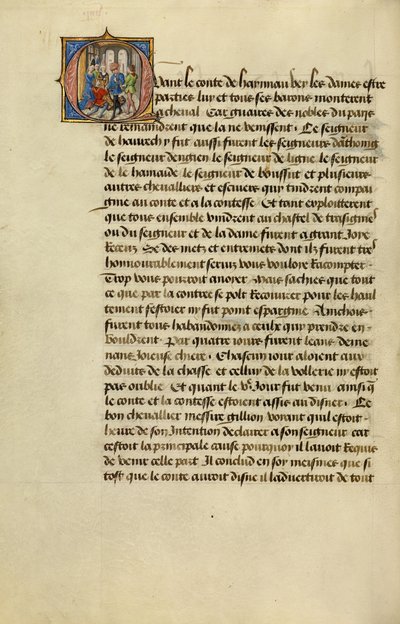 Quant le conte de haynnau vey les dames estre
parties luy et tous ses barons monterent
a cheval Car guaires des nobles du pays
ne remaindrent que la ne venissent. Ce seigneur
de haurech y fut aussi furent les seigneurs danthoing
le seigneur denghien le seigneur de ligne le seigneur
de la hamaide le seigneur de boussut et plusieurs
autres chevalliers et escuiers qui tindrent compai
gnie au conte et a la contesse. Et tant exploitterent
que tous ensemble vindrent au chastel de trasignies
ou du seigneur et de la dame furent a grant Joye
Receuz Se des metz et entremetz dont ilz furent tres
honnourablement servis vous vouloye Racompter.
Trop vous pourroit anoyer. Mais sachies que tout
ce que par la contree se polt Recouvrer pour les haul
tement festoier ny fut point espargnie Ainchois
furent tous habandonnez a ceulx quy prendre en
vouldrent. Par quatre jours furent leans deme
nans Joieuse chiere. Chascun jour aloient aux
deduits de la chasse et celluy de la vollerie ny estoit
pas oublie Et quant le v.e Jour fut venu ainsi q̃
le conte et la contesse estoient assis au disner. Ce
bon chevallier messire gillion voyant quil estoit
heure de son Intention declairer a son seigneur car
cestoit la principale cause pourquoy il lavoit Requis
de venir celle part Il conclud en soy meismes que si
tost que le conte auroit disne il ladvertiroit de tout